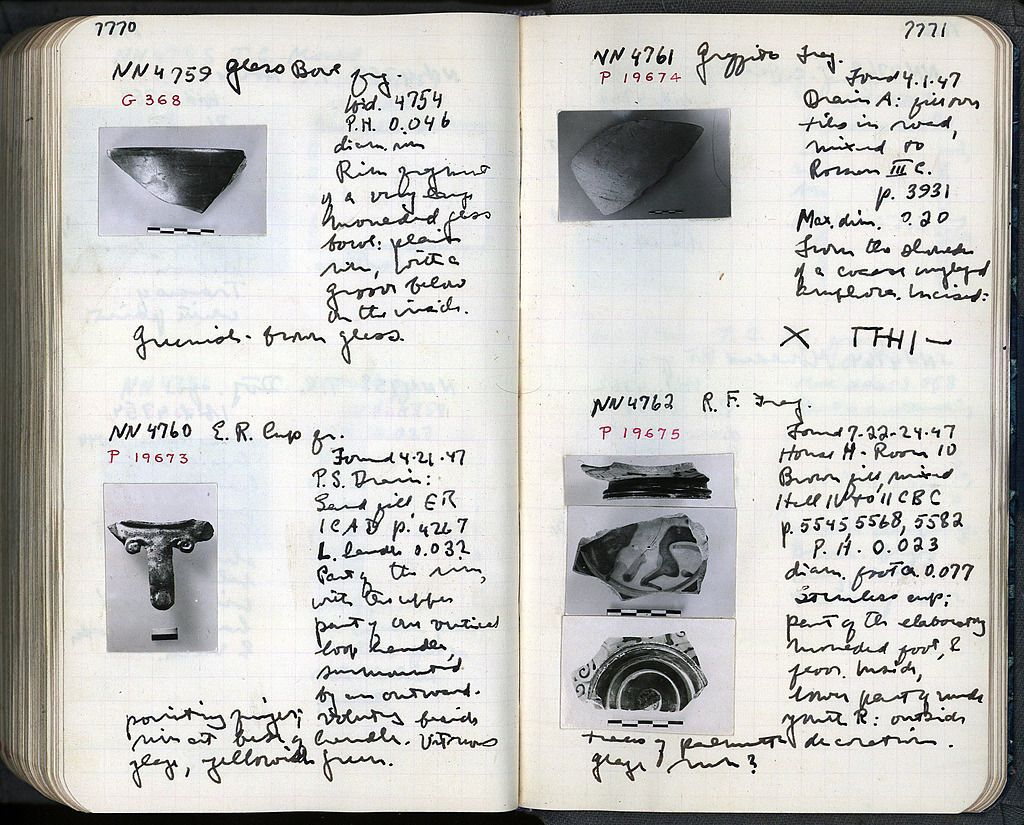 7770
NN 4759 Glass Bowl frg.
G 368
Wid. 4754
P.H. 0.046
diam. rim
Rim fragment
of a very large
moulded glass
bowl: plain
rim, with a
groove below
on the inside.
Greenish-brown glass.
NN 4760 E.R. Cup fr.
P 19673
Found 4-21-47
P.S. Drain:
Sand fill, ER
1C AD p. 4267
L. handle 0.032
Part of the rim,
with the upper
part of one vertical
loop handle,
surmounted
by an outward-
pointing finger; volutes beside
rim at base of handle. Vitreous
glaze, yellowish green.
7771
NN 4761 Graffito Frag.
P 19674
Found 4.1.47
Drain A: fill over
tiles in road,
mixed to
Roman III C.
p. 3931
Max. dim. 0.20
From the shoulder
of a coarse unglazed
amphora. Incised:
X THHI–
NN 4762 R.F. Frag.
P 19675
Found 7-22-24-47
House H - Room 10
Brown fill, mixed
Hell IV to II C BC
p. 5545, 5568, 5582
P.H. 0.023
diam. foot 0.077
Stemless cup;
part of the elaborately
moulded foot, &
floor. Inside,
lower part of nude
youth R: outside
traces of palmette decoration.
glaze